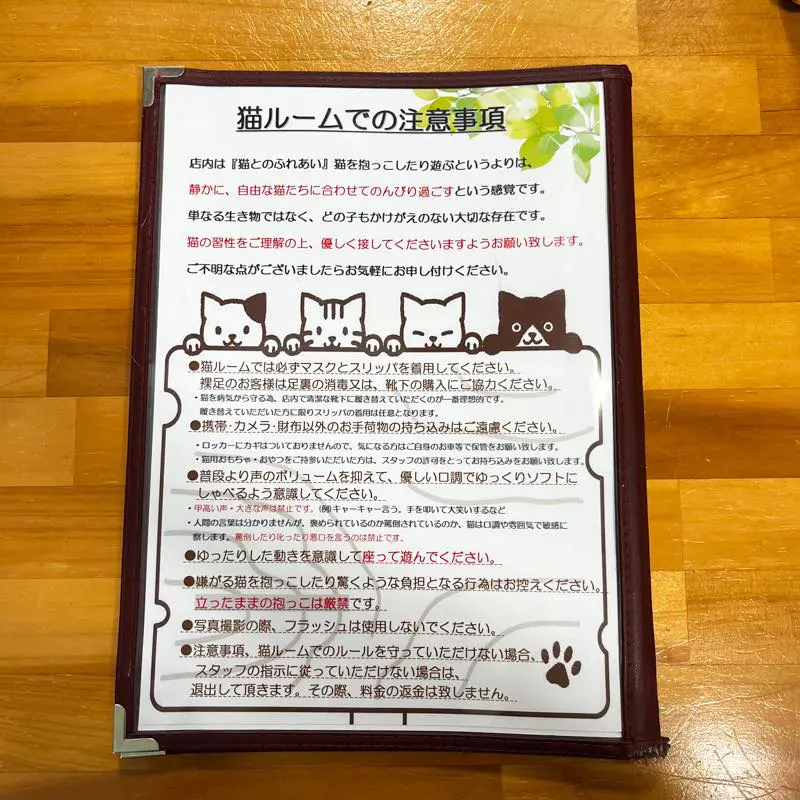 猫ルームでの注意事項
店内は『猫とのふれあい』猫を抱っこしたり遊ぶというよりは、
静かに、自由な猫たちに合わせてのんびり過ごすという感覚です。
単なる生き物ではなく、どの子もかけがえのない大切な存在です。
猫の習性をご理解の上、優しく接してくださいますようお願い致します。
ご不明な点がございましたらお気軽にお申し付けください。
●猫ルームでは必ずマスクとスリッパを着用してください。
裸足のお客様は足裏の消毒又は、靴下の購入にご協力ください。
・猫を病気から守る為、店内で清潔な靴下に履き替えていただくのが一番理想的です。
履き替えていただいた方に限りスリッパの着用は任意となります。
●携帯・カメラ・財布以外のお手荷物の持ち込みはご遠慮ください。
・ロッカーにカギはついておりませんので、気になる方はご自身のお車等で保管をお願い致します。
・猫用おもちゃ・おやつをご持参いただいた方は、スタッフの許可をとってお持ち込みをお願い致します。
●普段より声のボリュームを抑えて、優しい口調でゆっくりソフトに
しゃべるよう意識してください。
・甲高い声・大きな声は禁止です。(例)キャーキャー言う。手を叩いて大笑いするなど
・人間の言葉は分かりませんが、褒められているのか罵倒されているのか、猫は口調や雰囲気で敏感に
察します。罵倒したり叱ったり悪口を言うのは禁止です。
●ゆったりした動きを意識して座って遊んでください。
●嫌がる猫を抱っこしたり驚くような負担となる行為はお控えください。
立ったままの抱っこは厳禁です。
●写真撮影の際、フラッシュは使用しないでください。
●注意事項、猫ルームでのルールを守っていただけない場合、
スタッフの指示に従っていただけない場合は、
退出して頂きます。その際、料金の返金は致しません。